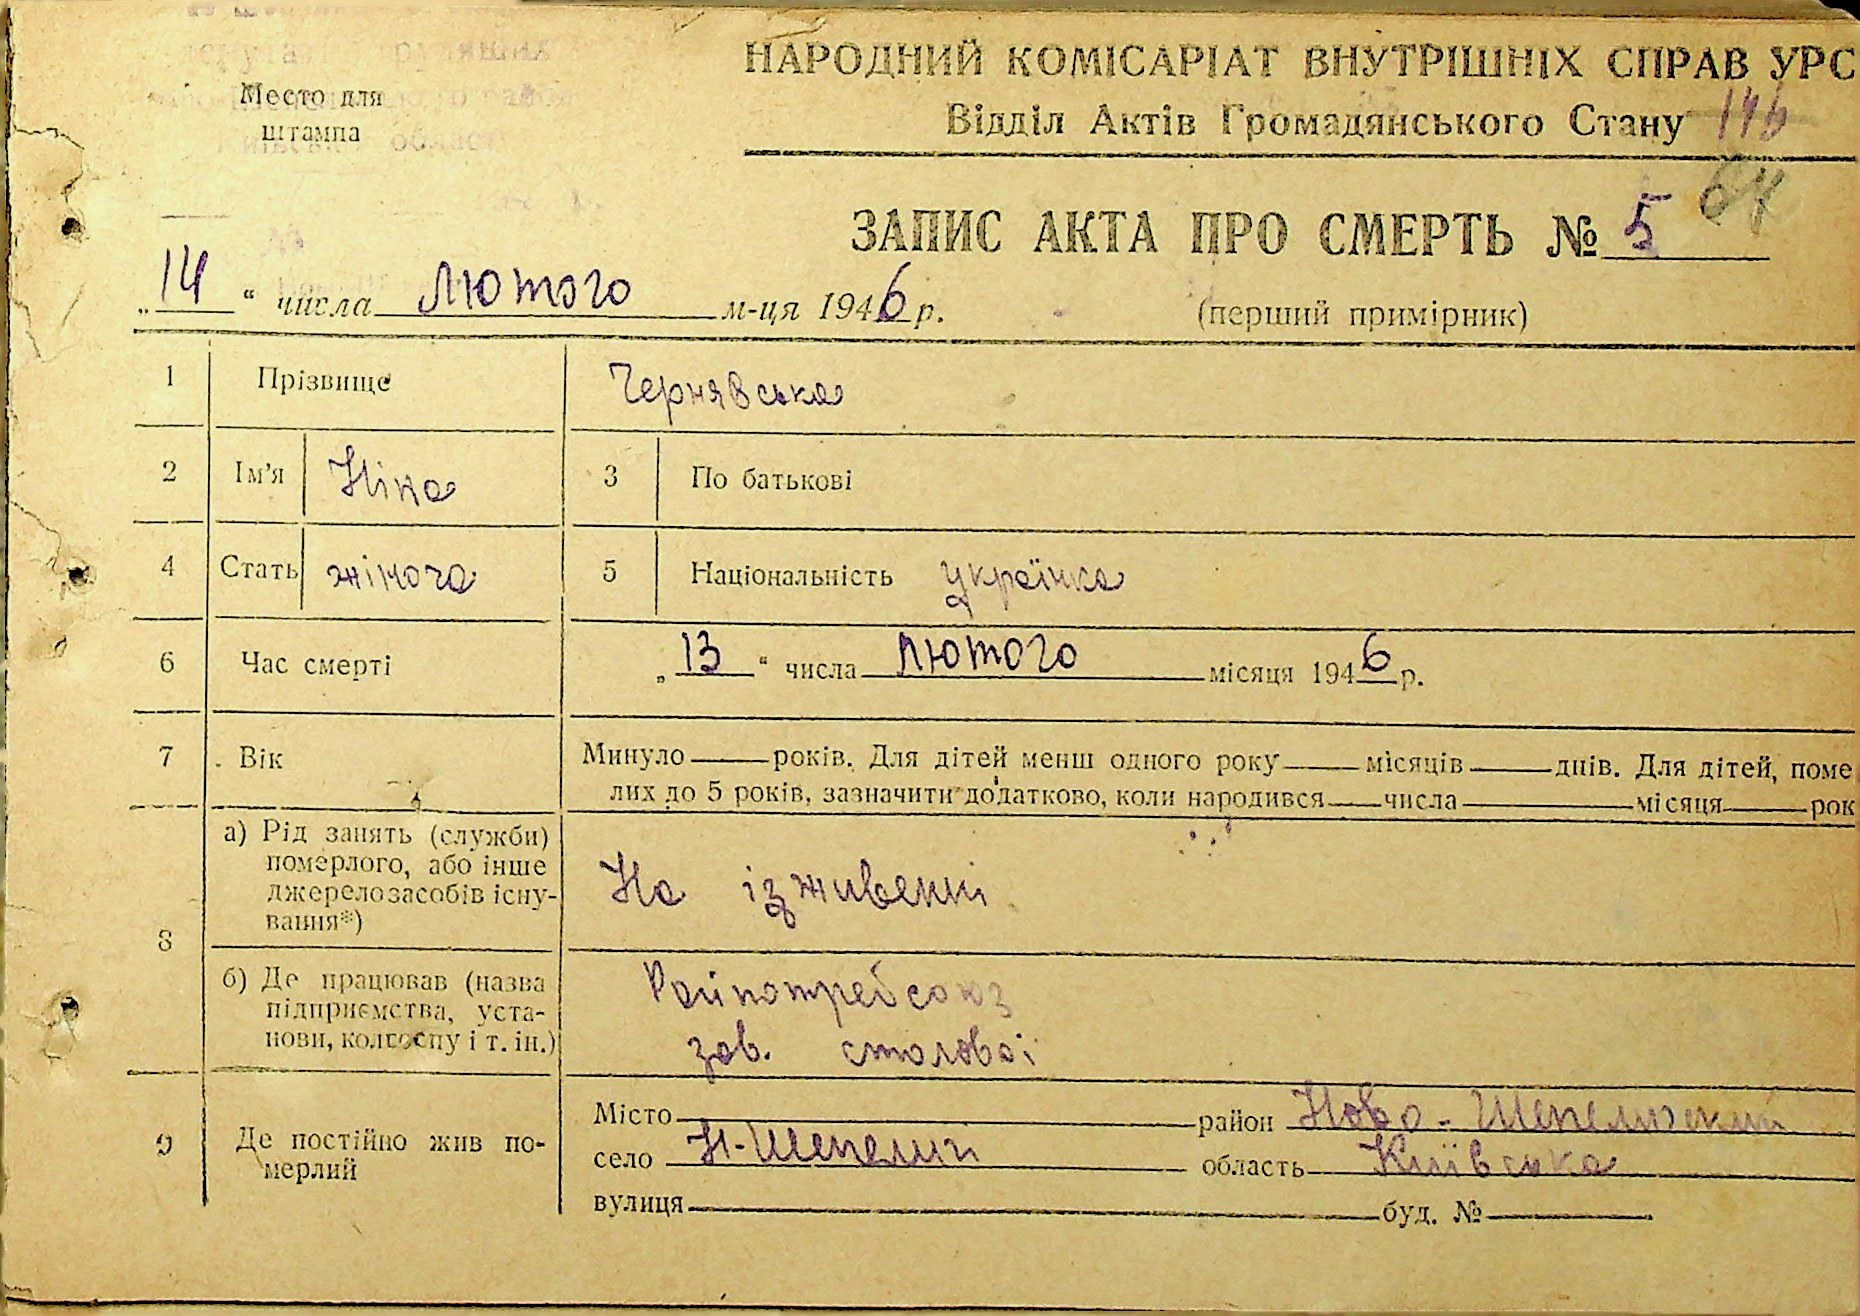 НАРОДНИЙ КОМІСАРІАТ ВНУТРІШНІХ СПРАВ УРС
Место для
штампа
Відділ Актів Громадянського Стану 146
64
ЗАПИС АКТА ПРО СМЕРТЬ № 5
„14“ числа Лютого м-ця 1946 р.
(перший примірник)
1 Прізвище Чернявська
2 Ім'я Ніна 3 По батькові
4 Стать жіноча 5 Національність українка
6 Час смерті „13“ числа лютого місяця 1946 р.
7 Вік Минуло ___ років. Для дітей менш одного року ___ місяців ___ днів. Для дітей, поме
лих до 5 років, зазначити додатково, коли народився ___ числа ___ місяця ___ рок
8 а) Рід занять (служби)
померлого, або інше
джерело засобів існу-
вання*)
На іздивенні
б) Де працював (назва
підприємства, уста-
нови, колгоспу і т. ін.)
Райпотребсоюз
зав. столової
9 Де постійно жив по-
мерлий
Місто ___ район Ново-Шепелицький
село Н-Шепеличі область Київська
вулиця ___ буд. № ___